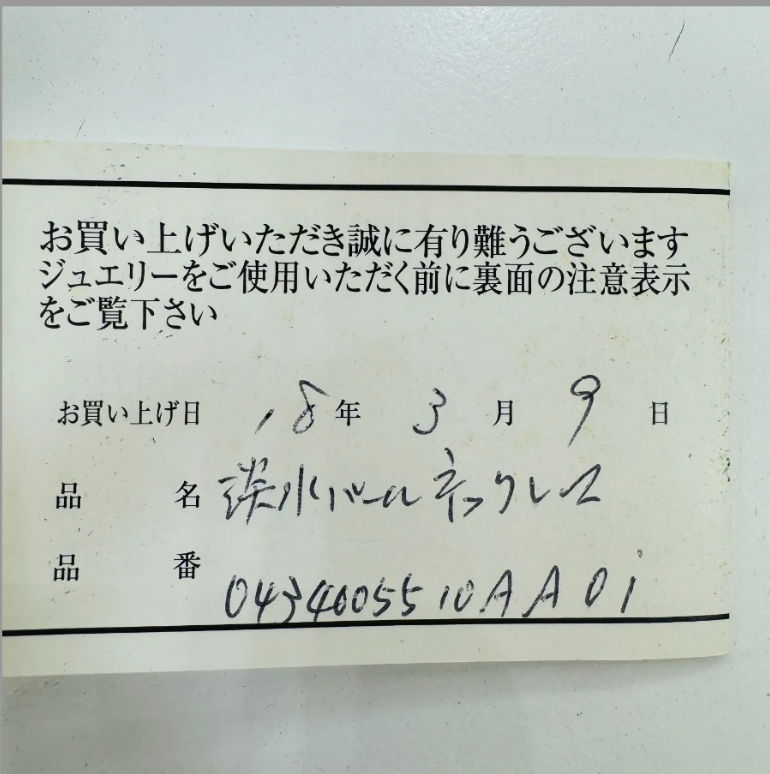 お買い上げいただき誠に有り難うございます
ジュエリーをご使用いただく前に裏面の注意表示
をご覧下さい
お買い上げ日 '18年 3月 9日
品名 淡水パールネックレス
品番 0434005510AA01